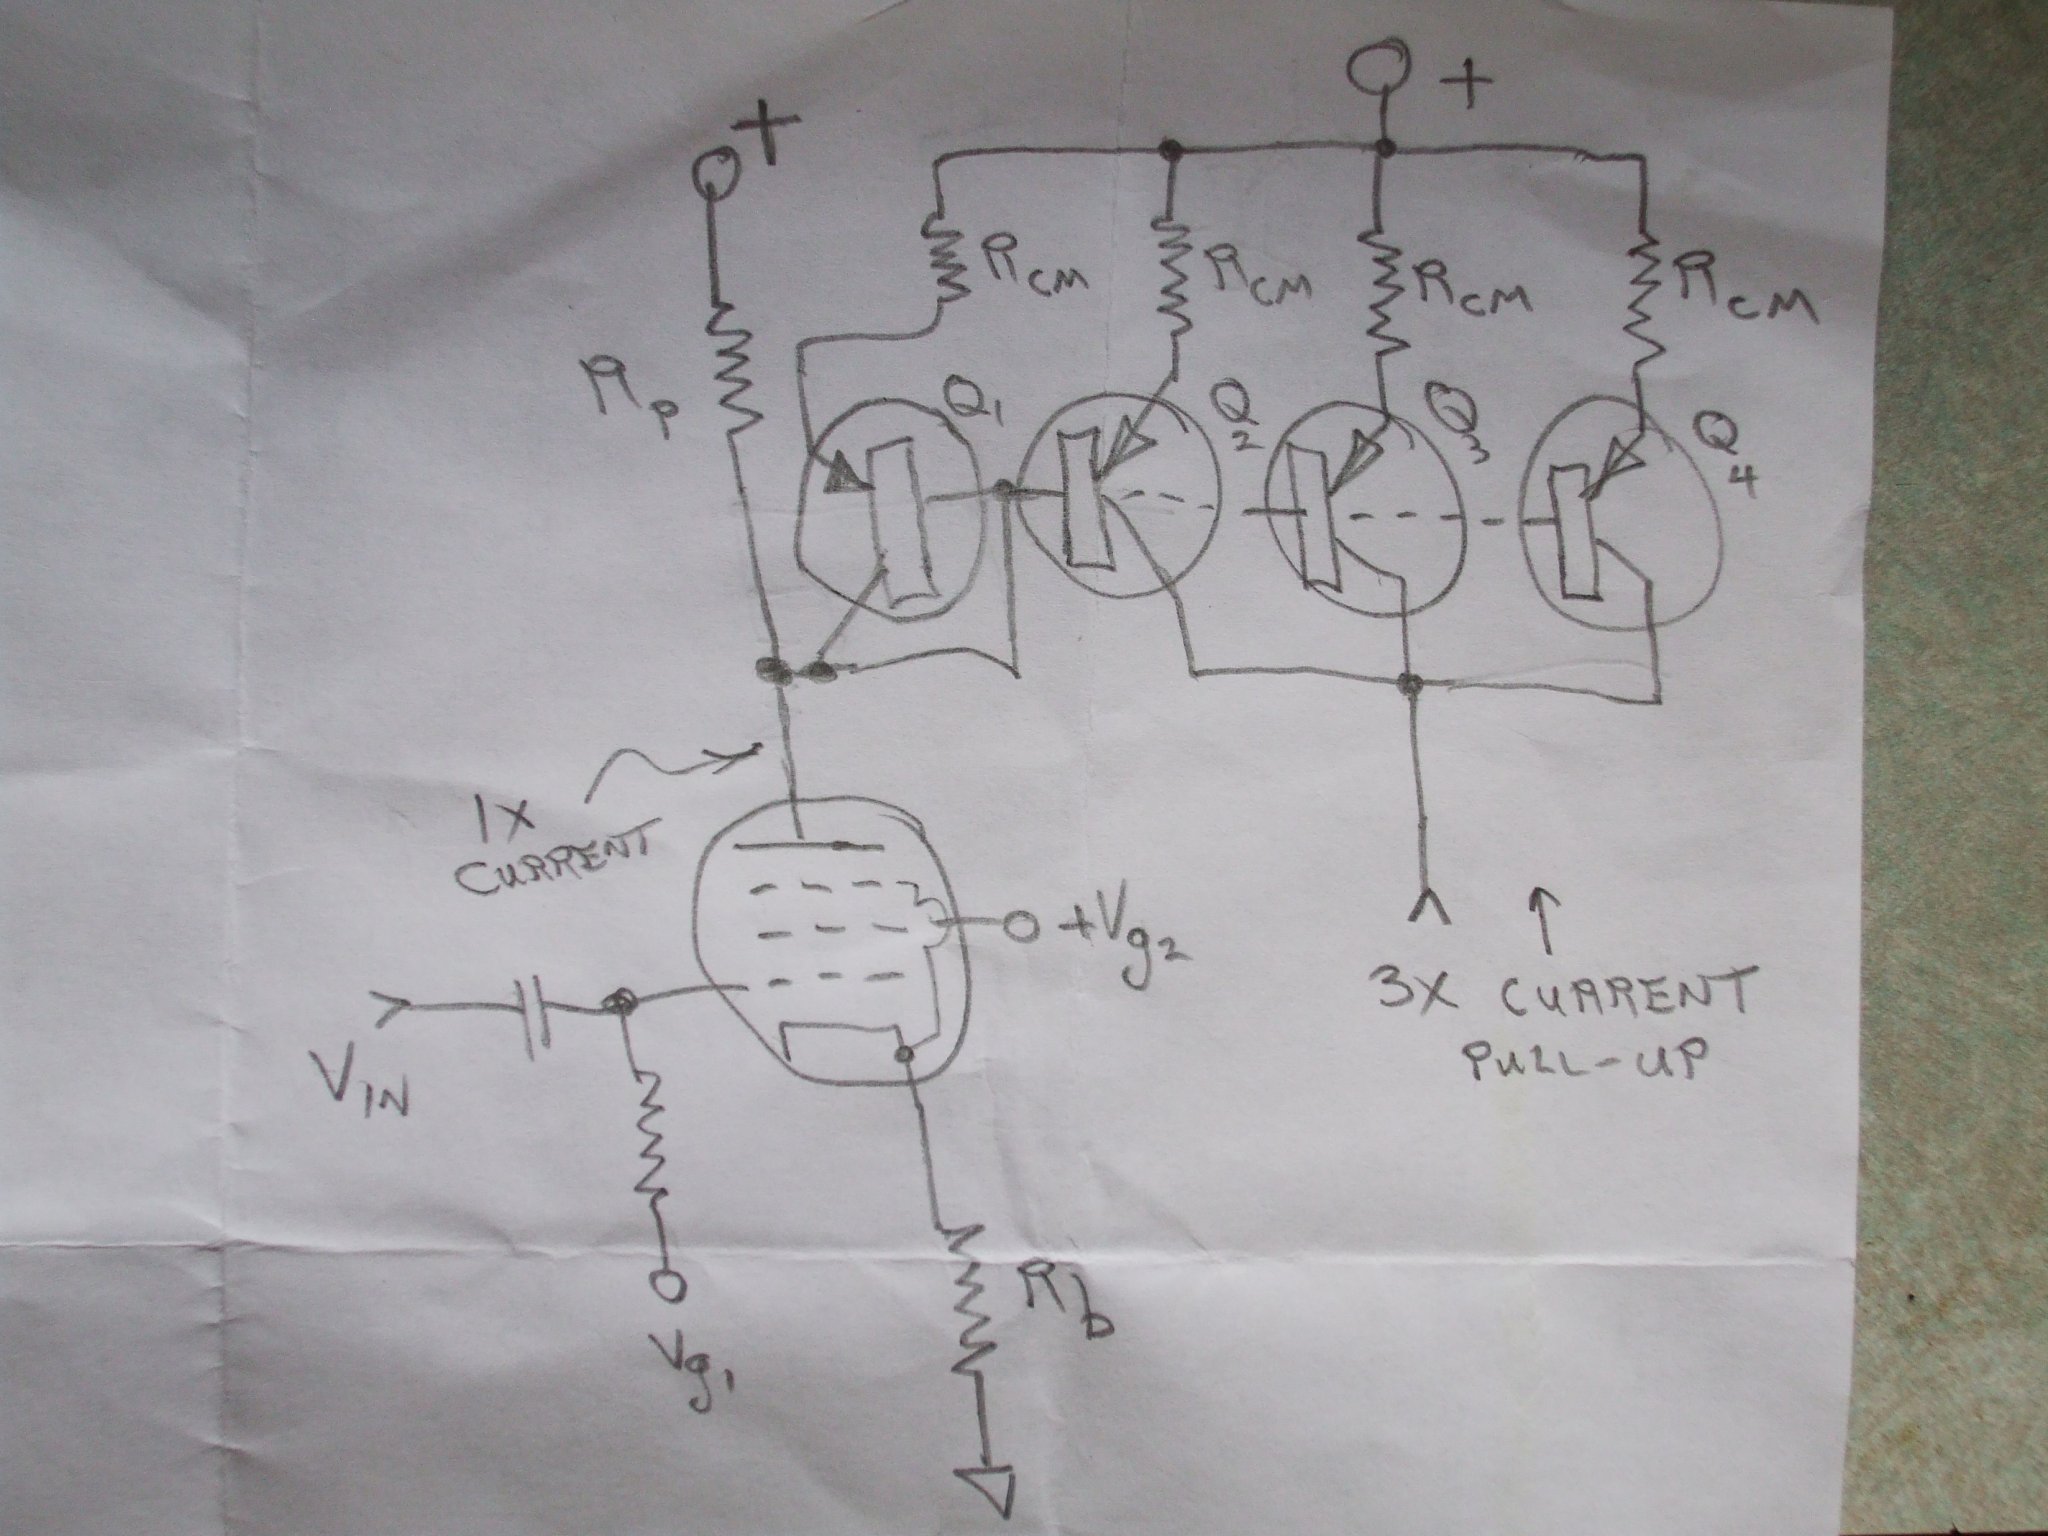 +
+
R_CM
R_CM
R_CM
R_CM
R_P
Q_1
Q_2
Q_3
Q_4
1X
CURRENT
+V_g2
3X CURRENT
PULL-UP
V_IN
R_b
V_g1